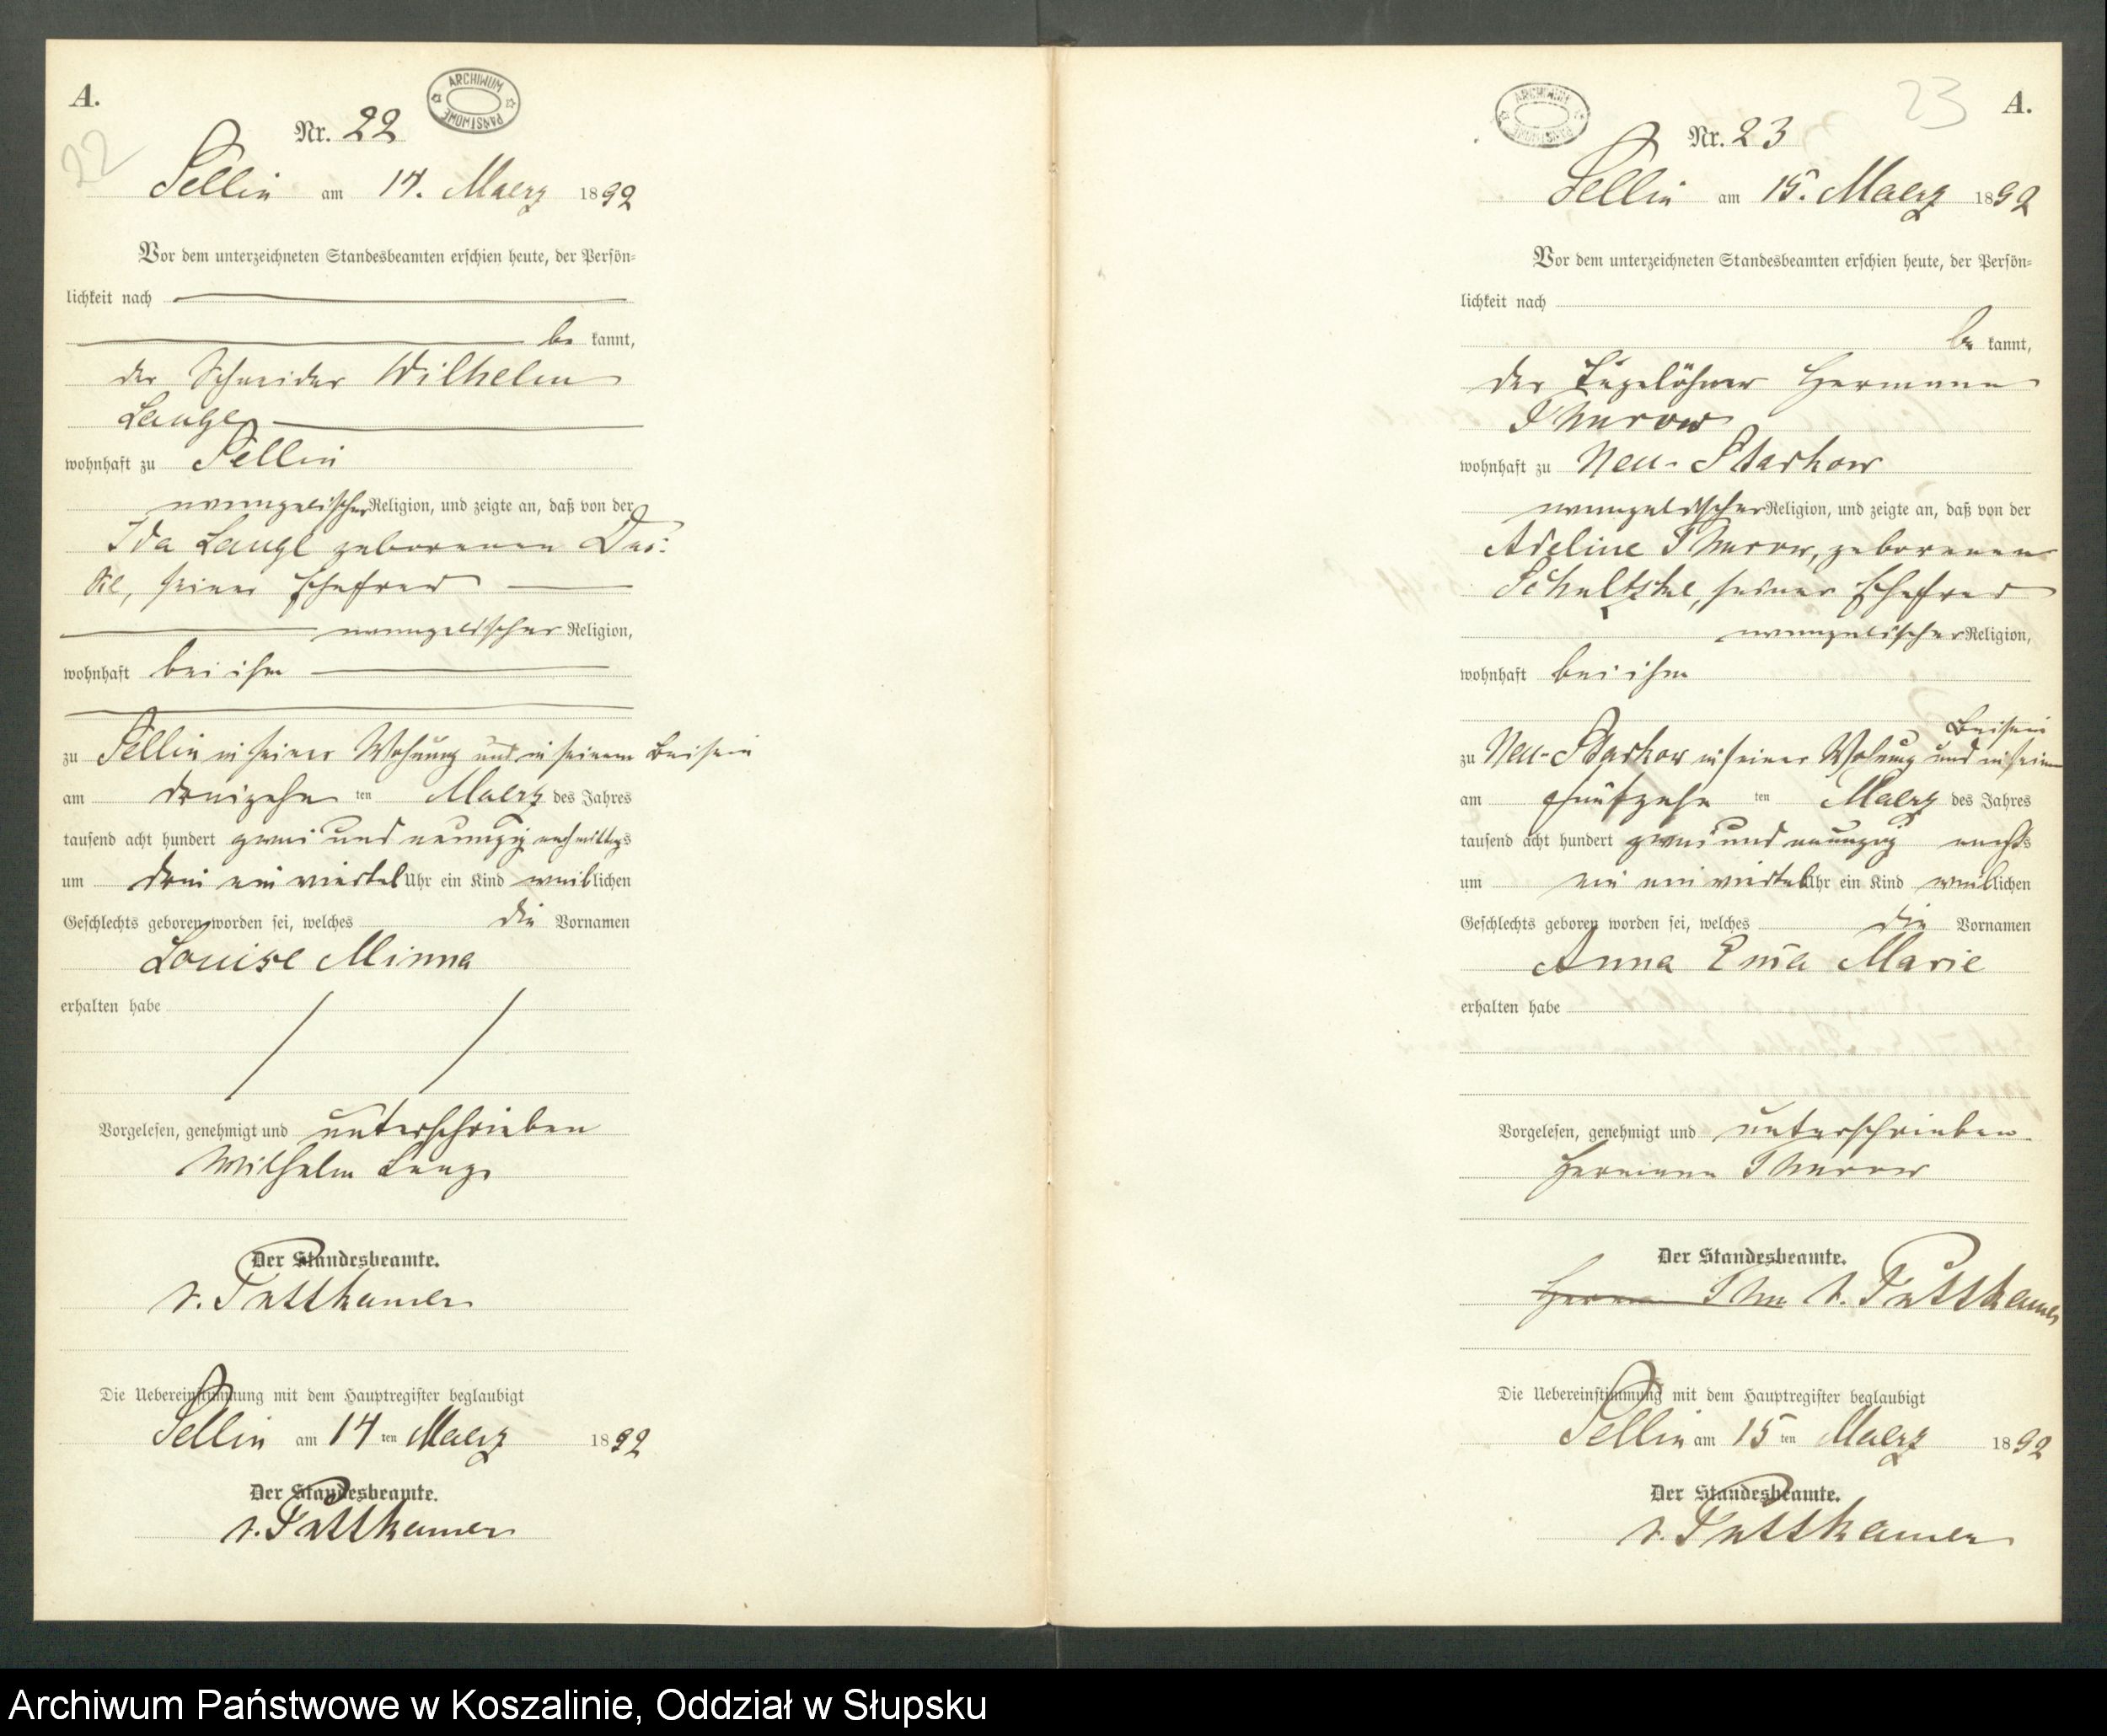 A.
22
ARCHIWUM PAŃSTWOWE
Nr. 22
Sellin am 14. Maerz 1892
Vor dem unterzeichneten Standesbeamten erschien heute, der Persön-
lichkeit nach
be kannt,
der Schneider Wilhelm
Lange
wohnhaft zu Sellin
evangelischer Religion, und zeigte an, daß von der
Ida Lange geborenen Das-
ke, seiner Ehefrau
evangelischer Religion,
wohnhaft bei ihm
zu Sellin in seiner Wohnung und in seinem Beisein
am dreizehn ten Maerz des Jahres
tausend acht hundert zwei und neunzig nachmittags
um drei ein viertel Uhr ein Kind weiblichen
Geschlechts geboren worden sei, welches die Vornamen
Louise Minna
erhalten habe
Vorgelesen, genehmigt und unterschrieben
Wilhelm Lange
Der Standesbeamte.
v. Puttkamer
Die Uebereinstimmung mit dem Hauptregister beglaubigt
Sellin am 14 ten Maerz 1892
Der Standesbeamte.
v. Puttkamer
ARCHIWUM PAŃSTWOWE
23
A.
Nr. 23
Sellin am 15. Maerz 1892
Vor dem unterzeichneten Standesbeamten erschien heute, der Persön-
lichkeit nach
be kannt,
der Tagelöhner Hermann
Thurow
wohnhaft zu Neu-Starkow
evangelischer Religion, und zeigte an, daß von der
Adeline Thurow, geborenen
Schultzke, seiner Ehefrau
evangelischer Religion,
wohnhaft bei ihm
Beisein
zu Neu-Starkow in seiner Wohnung und in seinem
am fünfzehn ten Maerz des Jahres
tausend acht hundert zwei und neunzig nachts
um ein ein viertel Uhr ein Kind weiblichen
Geschlechts geboren worden sei, welches die Vornamen
Anna Em̄a Marie
erhalten habe
Vorgelesen, genehmigt und unterschrieben.
Hermann Thurow
Der Standesbeamte.
Herman Thu v. Puttkamer
Die Uebereinstimmung mit dem Hauptregister beglaubigt
Sellin am 15 ten Maerz 1892
Der Standesbeamte.
v. Puttkamer
Archiwum Państwowe w Koszalinie, Oddział w Słupsku